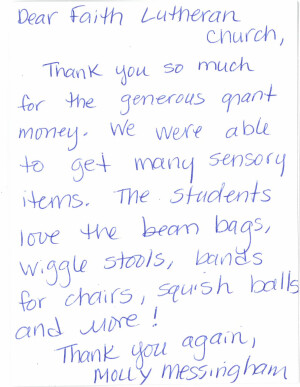 Dear Faith Lutheran
Church,
Thank you so much
for the generous grant
money. We were able
to get many sensory
items. The students
love the beam bags,
wiggle stools, bands
for chairs, squish balls
and more!
Thank you again,
Molly Messingham